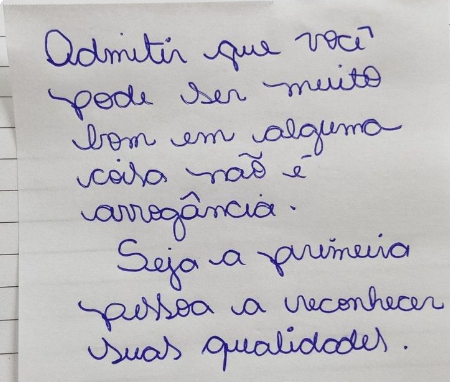 Admitir que você
pode ser muito
bom em alguma
coisa não é
arrogância.
Seja a primeira
pessoa a reconhecer
suas qualidades.